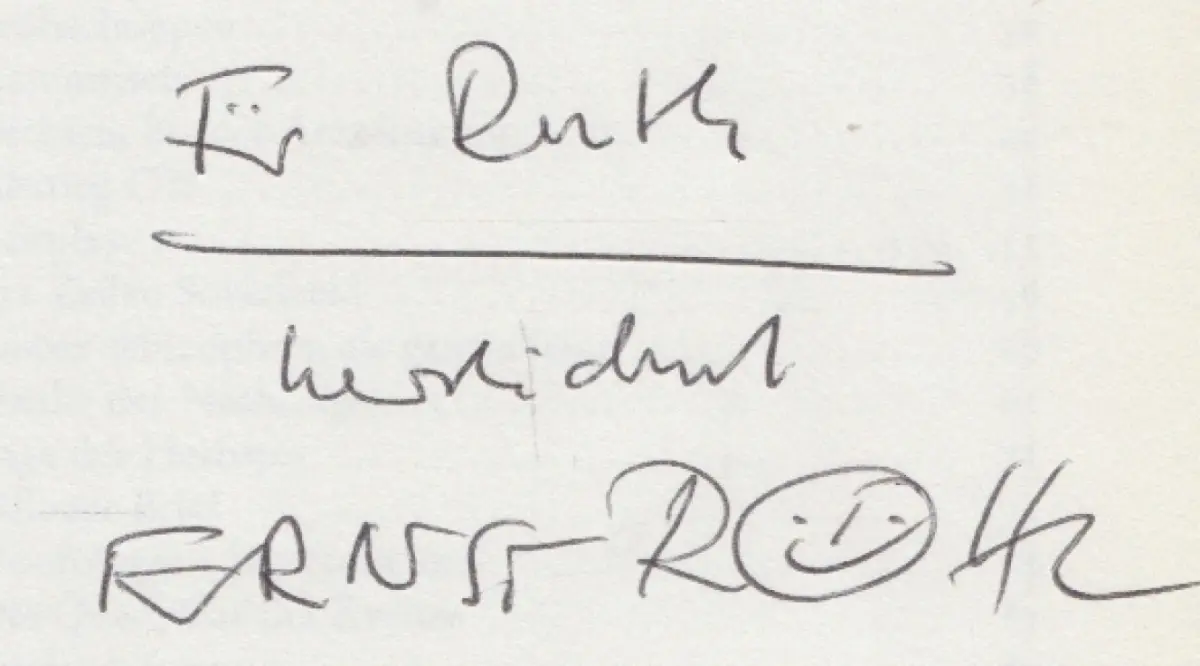 Für Ruth
herzlichst
ERNST ROTH